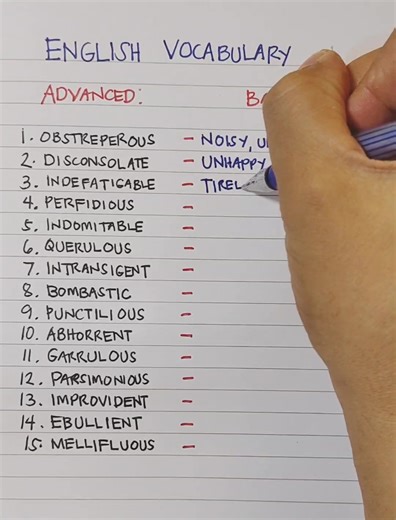 ENGLISH VOCABULARY
ADVANCED:
1. OBSTREPEROUS - NOISY,
2. DISCONSOLATE - UNHAPPY
3. INDEFATIGABLE - TIREL
4. PERFIDIOUS -
5. INDOMITABLE -
6. QUERULOUS -
7. INTRANSIGENT -
8. BOMBASTIC -
9. PUNCTILIOUS -
10. ABHORRENT -
11. GARRULOUS -
12. PARSIMONIOUS -
13. IMPROVIDENT -
14. EBULLIENT -
15. MELLIFLUOUS -